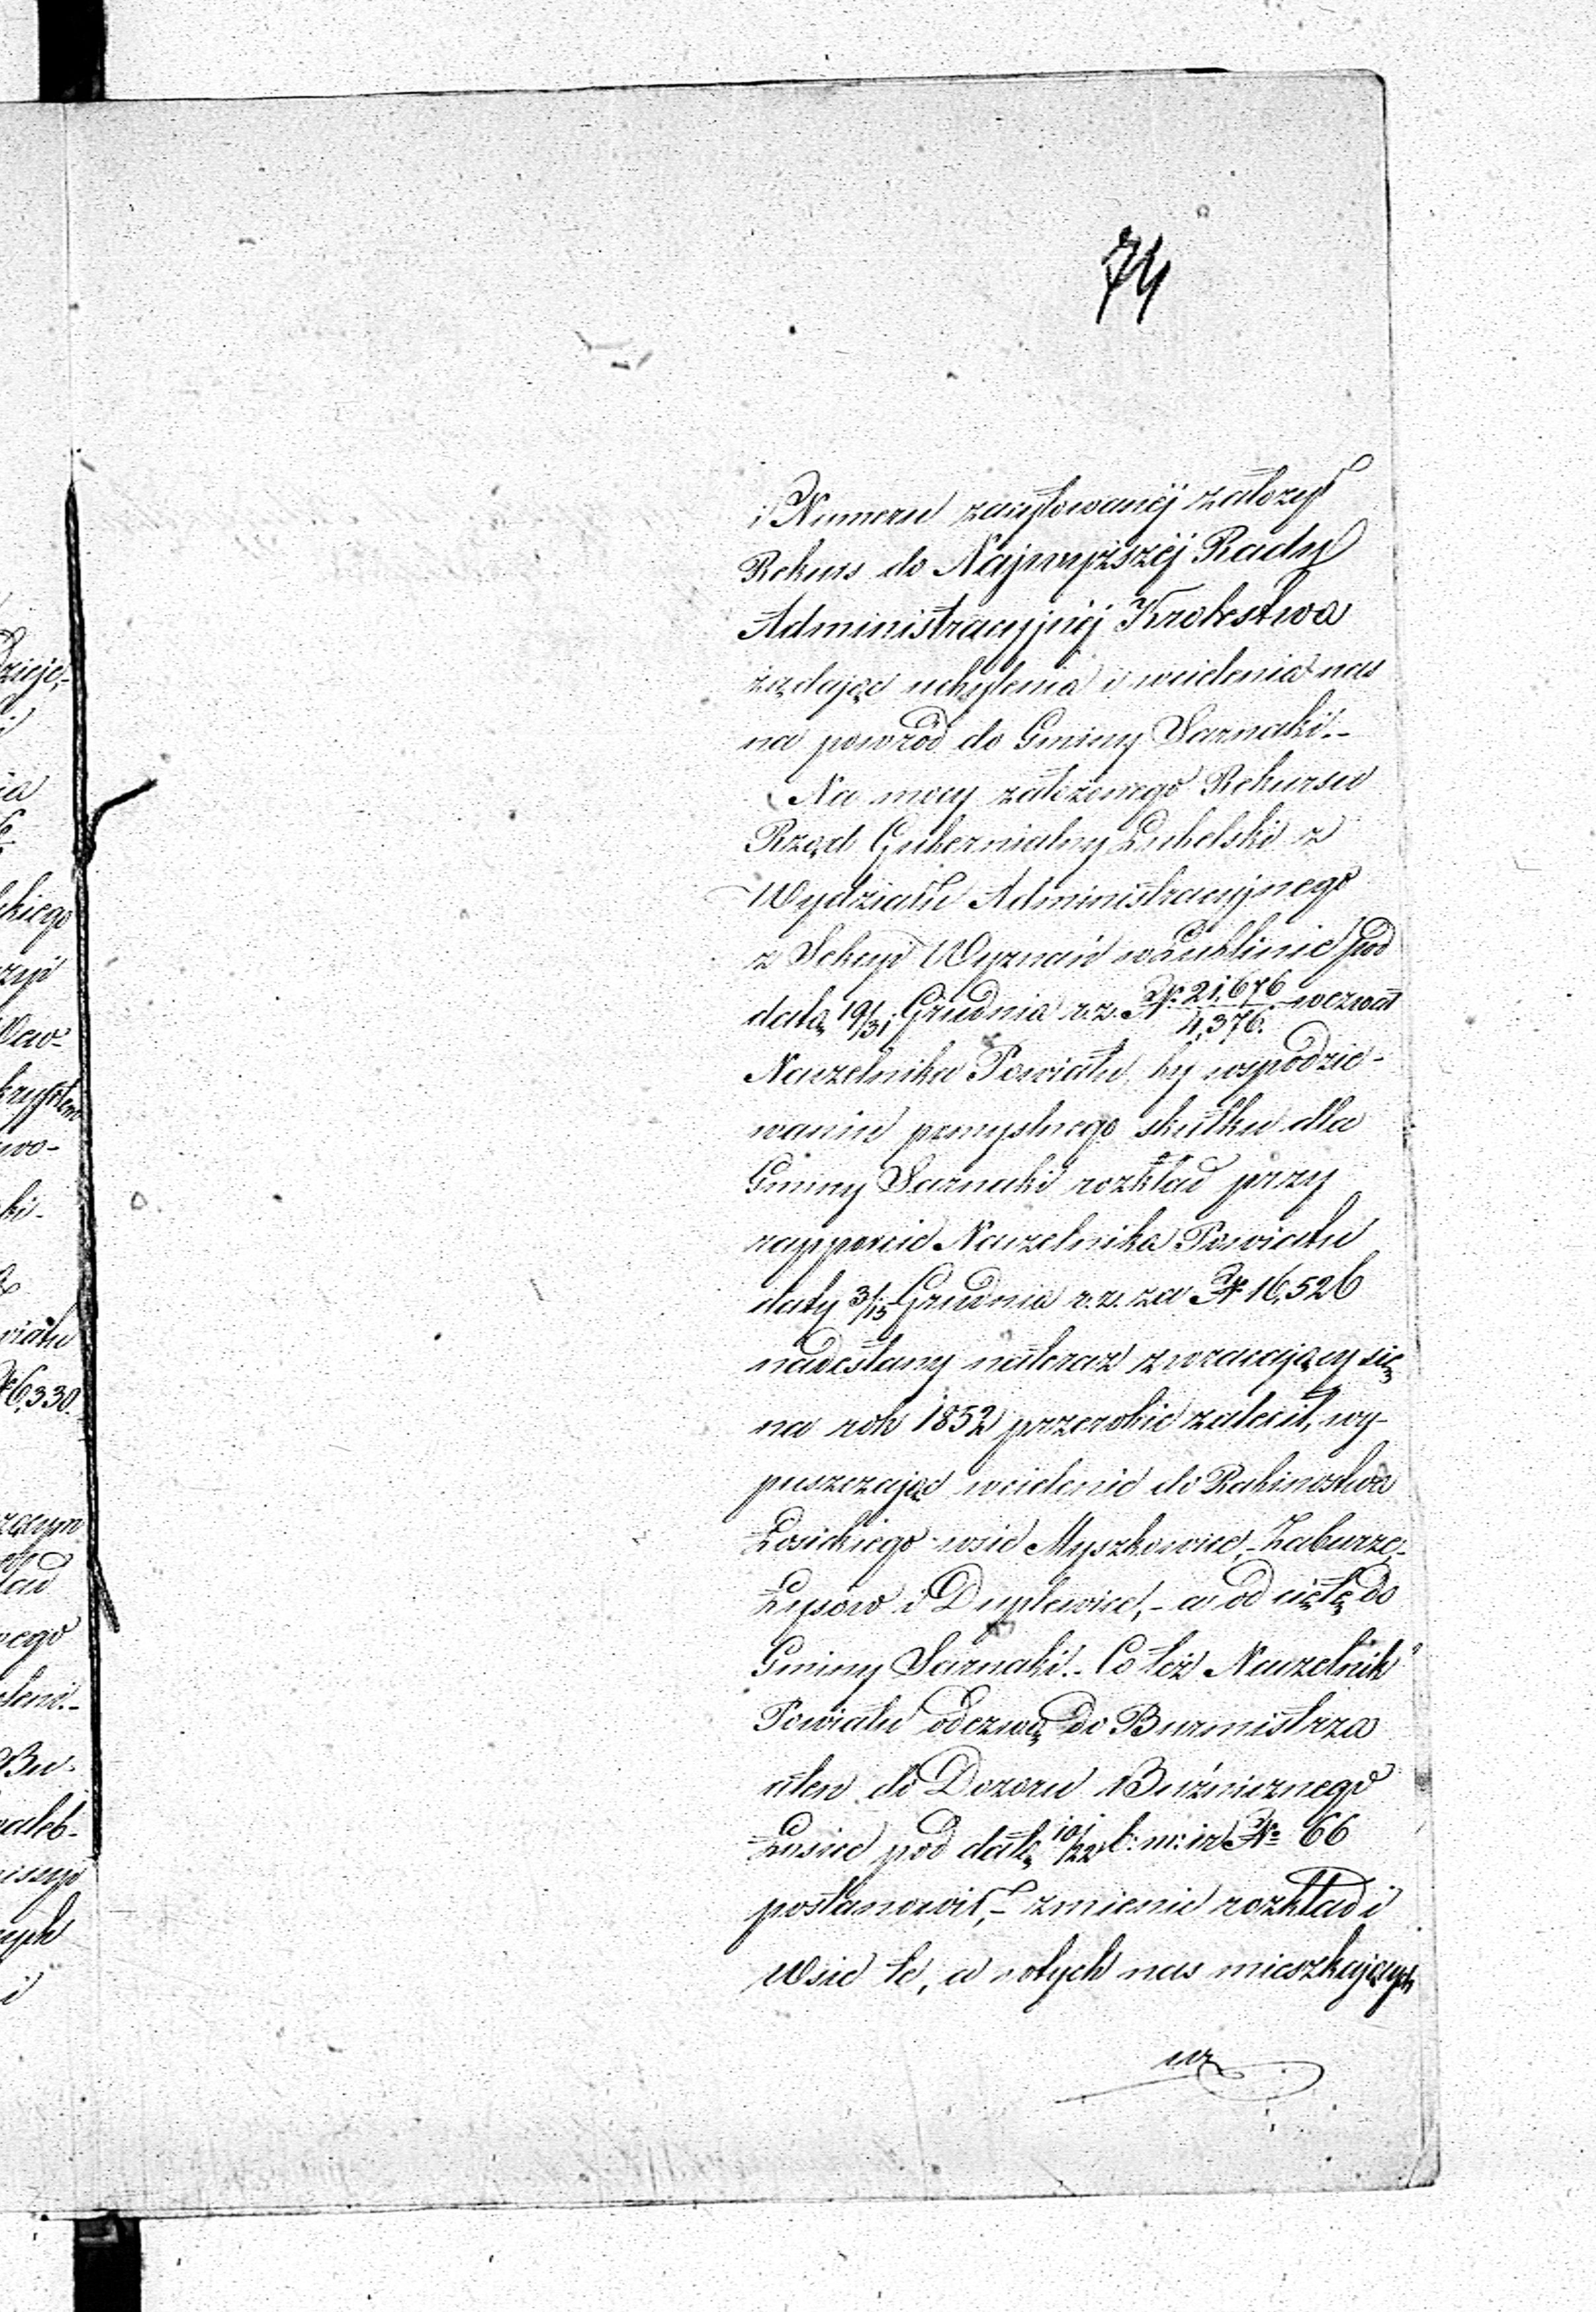 74
i Numeru zacytowanéj założył
Rekurs do Najwyższéj Rady
Administracyjnéj Krolestwa
żądając uchylenia i wcielenia nas
na powród do Gminy Sarnaki.-
Na mocy założonego Rekursu
Rząd Gubernialny Lubelski z
Wydziału Administracyjnego
z Sekcyi Wyznań w Lublinie pod
datą 19/31 Grudnia r. z. N. 21,676/4,376. wezwał
Naczelnika Powiatu, by wspodzie-
waniu pomyslnego skutku dla
Gminy Sarnaki rozkład przy
rapporcie Naczelnika Powiatu
daty 3/15 Grudnia r. z. za N 16,526
nadesłany nateraz zwracający się
na rok 1852 przerobić zalecił, wy-
puszczając wcielenie do Rabinostwa
Łosickiego wsie Myszkowice,- Zaburze,-
Łysów i Duplewice,- a od cięte do
Gminy Sarnaki.- Co też Naczelnik
Powiatu odezwą do Burmistrza
a ten do Dozoru Bużnicznego
Łosice pod datą 10/22 b: m: i r N° 66
postanowił,- zmienić rozkład i
wsie te, a wtych nas mieszkających
dzieje,-
i
ia
kiego
zyi
wo-
ki-
wiatu
6,330.
zącym
ład
nego
Bu-
i